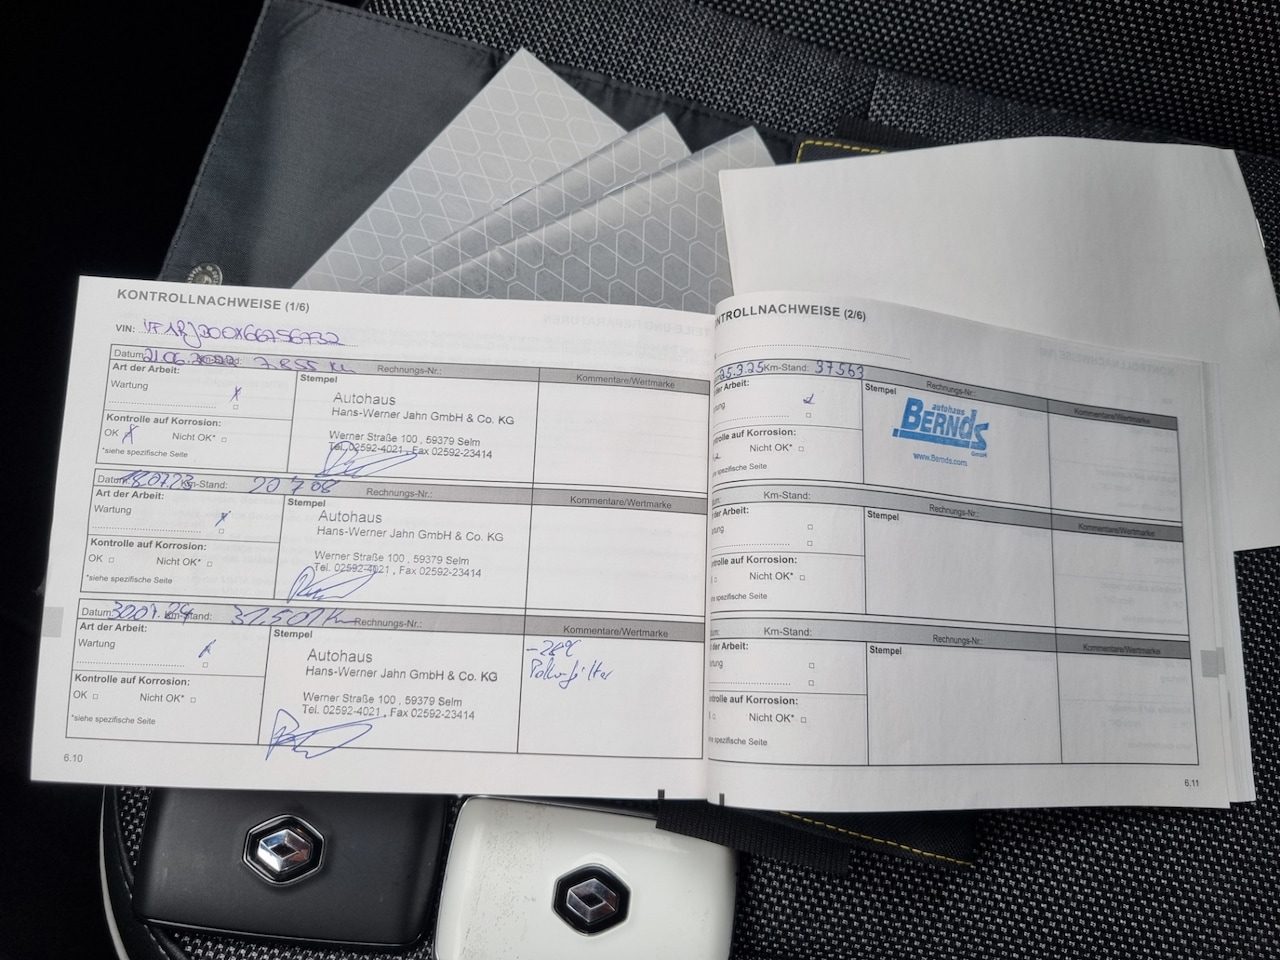 KONTROLLNACHWEISE (1/6)
VIN:
Datum: 21.06. Km-Stand: 7.855 Km Rechnungs-Nr.:
Art der Arbeit:
Wartung X
Kontrolle auf Korrosion:
OK X Nicht OK*
*siehe spezifische Seite
Stempel
Autohaus
Hans-Werner Jahn GmbH & Co. KG
Werner Straße 100 , 59379 Selm
Tel. 02592-4021 , Fax 02592-23414
Kommentare/Wertmarke
Datum: 18.07.23 Km-Stand: 20 708 Rechnungs-Nr.:
Art der Arbeit:
Wartung X
Kontrolle auf Korrosion:
OK Nicht OK*
*siehe spezifische Seite
Stempel
Autohaus
Hans-Werner Jahn GmbH & Co. KG
Werner Straße 100 , 59379 Selm
Tel. 02592-4021 , Fax 02592-23414
Kommentare/Wertmarke
Datum: 30.07.24 Km-Stand: Rechnungs-Nr.:
Art der Arbeit:
Wartung X
Kontrolle auf Korrosion:
OK Nicht OK*
*siehe spezifische Seite
Stempel
Autohaus
Hans-Werner Jahn GmbH & Co. KG
Werner Straße 100 , 59379 Selm
Tel. 02592-4021 , Fax 02592-23414
Kommentare/Wertmarke
Pollenfilter
6.10
NTROLLNACHWEISE (2/6)
25.3.25 Km-Stand: 37563 Rechnungs-Nr.:
der Arbeit:
tung
ntrolle auf Korrosion:
Nicht OK*
spezifische Seite
Stempel
autohaus
BERNDS
GmbH
www.Bernds.com
Kommentare/Wertmarke
tum: Km-Stand: Rechnungs-Nr.:
der Arbeit:
tung
ntrolle auf Korrosion:
Nicht OK*
spezifische Seite
Stempel
Kommentare/Wertmarke
tum: Km-Stand: Rechnungs-Nr.:
der Arbeit:
tung
ntrolle auf Korrosion:
Nicht OK*
spezifische Seite
Stempel
Kommentare/Wertmarke
6.11